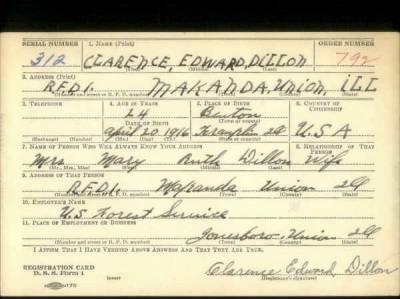 SERIAL NUMBER 1. NAME (Print) ORDER NUMBER
312 CLARENCE, EDWARD, DILLON 792
(First) (Middle) (Last)
2. ADDRESS (Print)
R.F.D.1. MAKANDA, Union, ILL
(Number and street or R. F. D. number) (Town) (County) (State)
3. TELEPHONE 4. AGE IN YEARS 5. PLACE OF BIRTH 6. COUNTRY OF CITIZENSHIP
24 Benton
DATE OF BIRTH (Town or county)
April 20 1916 Franklin Ill U.S.A
(Exchange) (Number) (Mo.) (Day) (Yr.) (State or country)
7. NAME OF PERSON WHO WILL ALWAYS KNOW YOUR ADDRESS 8. RELATIONSHIP OF THAT PERSON
Mrs. Mary Ruth Dillon Wife
(Mr., Mrs., Miss) (First) (Middle) (Last)
9. ADDRESS OF THAT PERSON
R.F.D.1. Makanda Union Ill
(Number and street or R. F. D. number) (Town) (County) (State)
10. EMPLOYER'S NAME
U.S. Forest Service
11. PLACE OF EMPLOYMENT OR BUSINESS
Jonesboro Union Ill
(Number and street or R. F. D. number) (Town) (County) (State)
I AFFIRM THAT I HAVE VERIFIED ABOVE ANSWERS AND THAT THEY ARE TRUE.
REGISTRATION CARD
D. S. S. Form 1
Clarence Edward Dillon
(Registrant's signature)